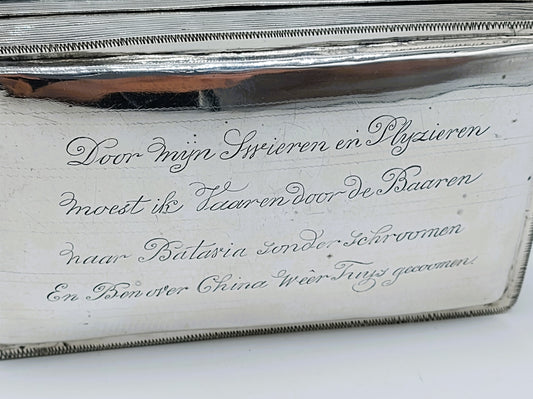 Door mijn Swieren en Plyzieren
moest ik Vaaren door de Baaren
naar Batavia sonder schroomen
En Ben over China wêêr Tuys gecoomen